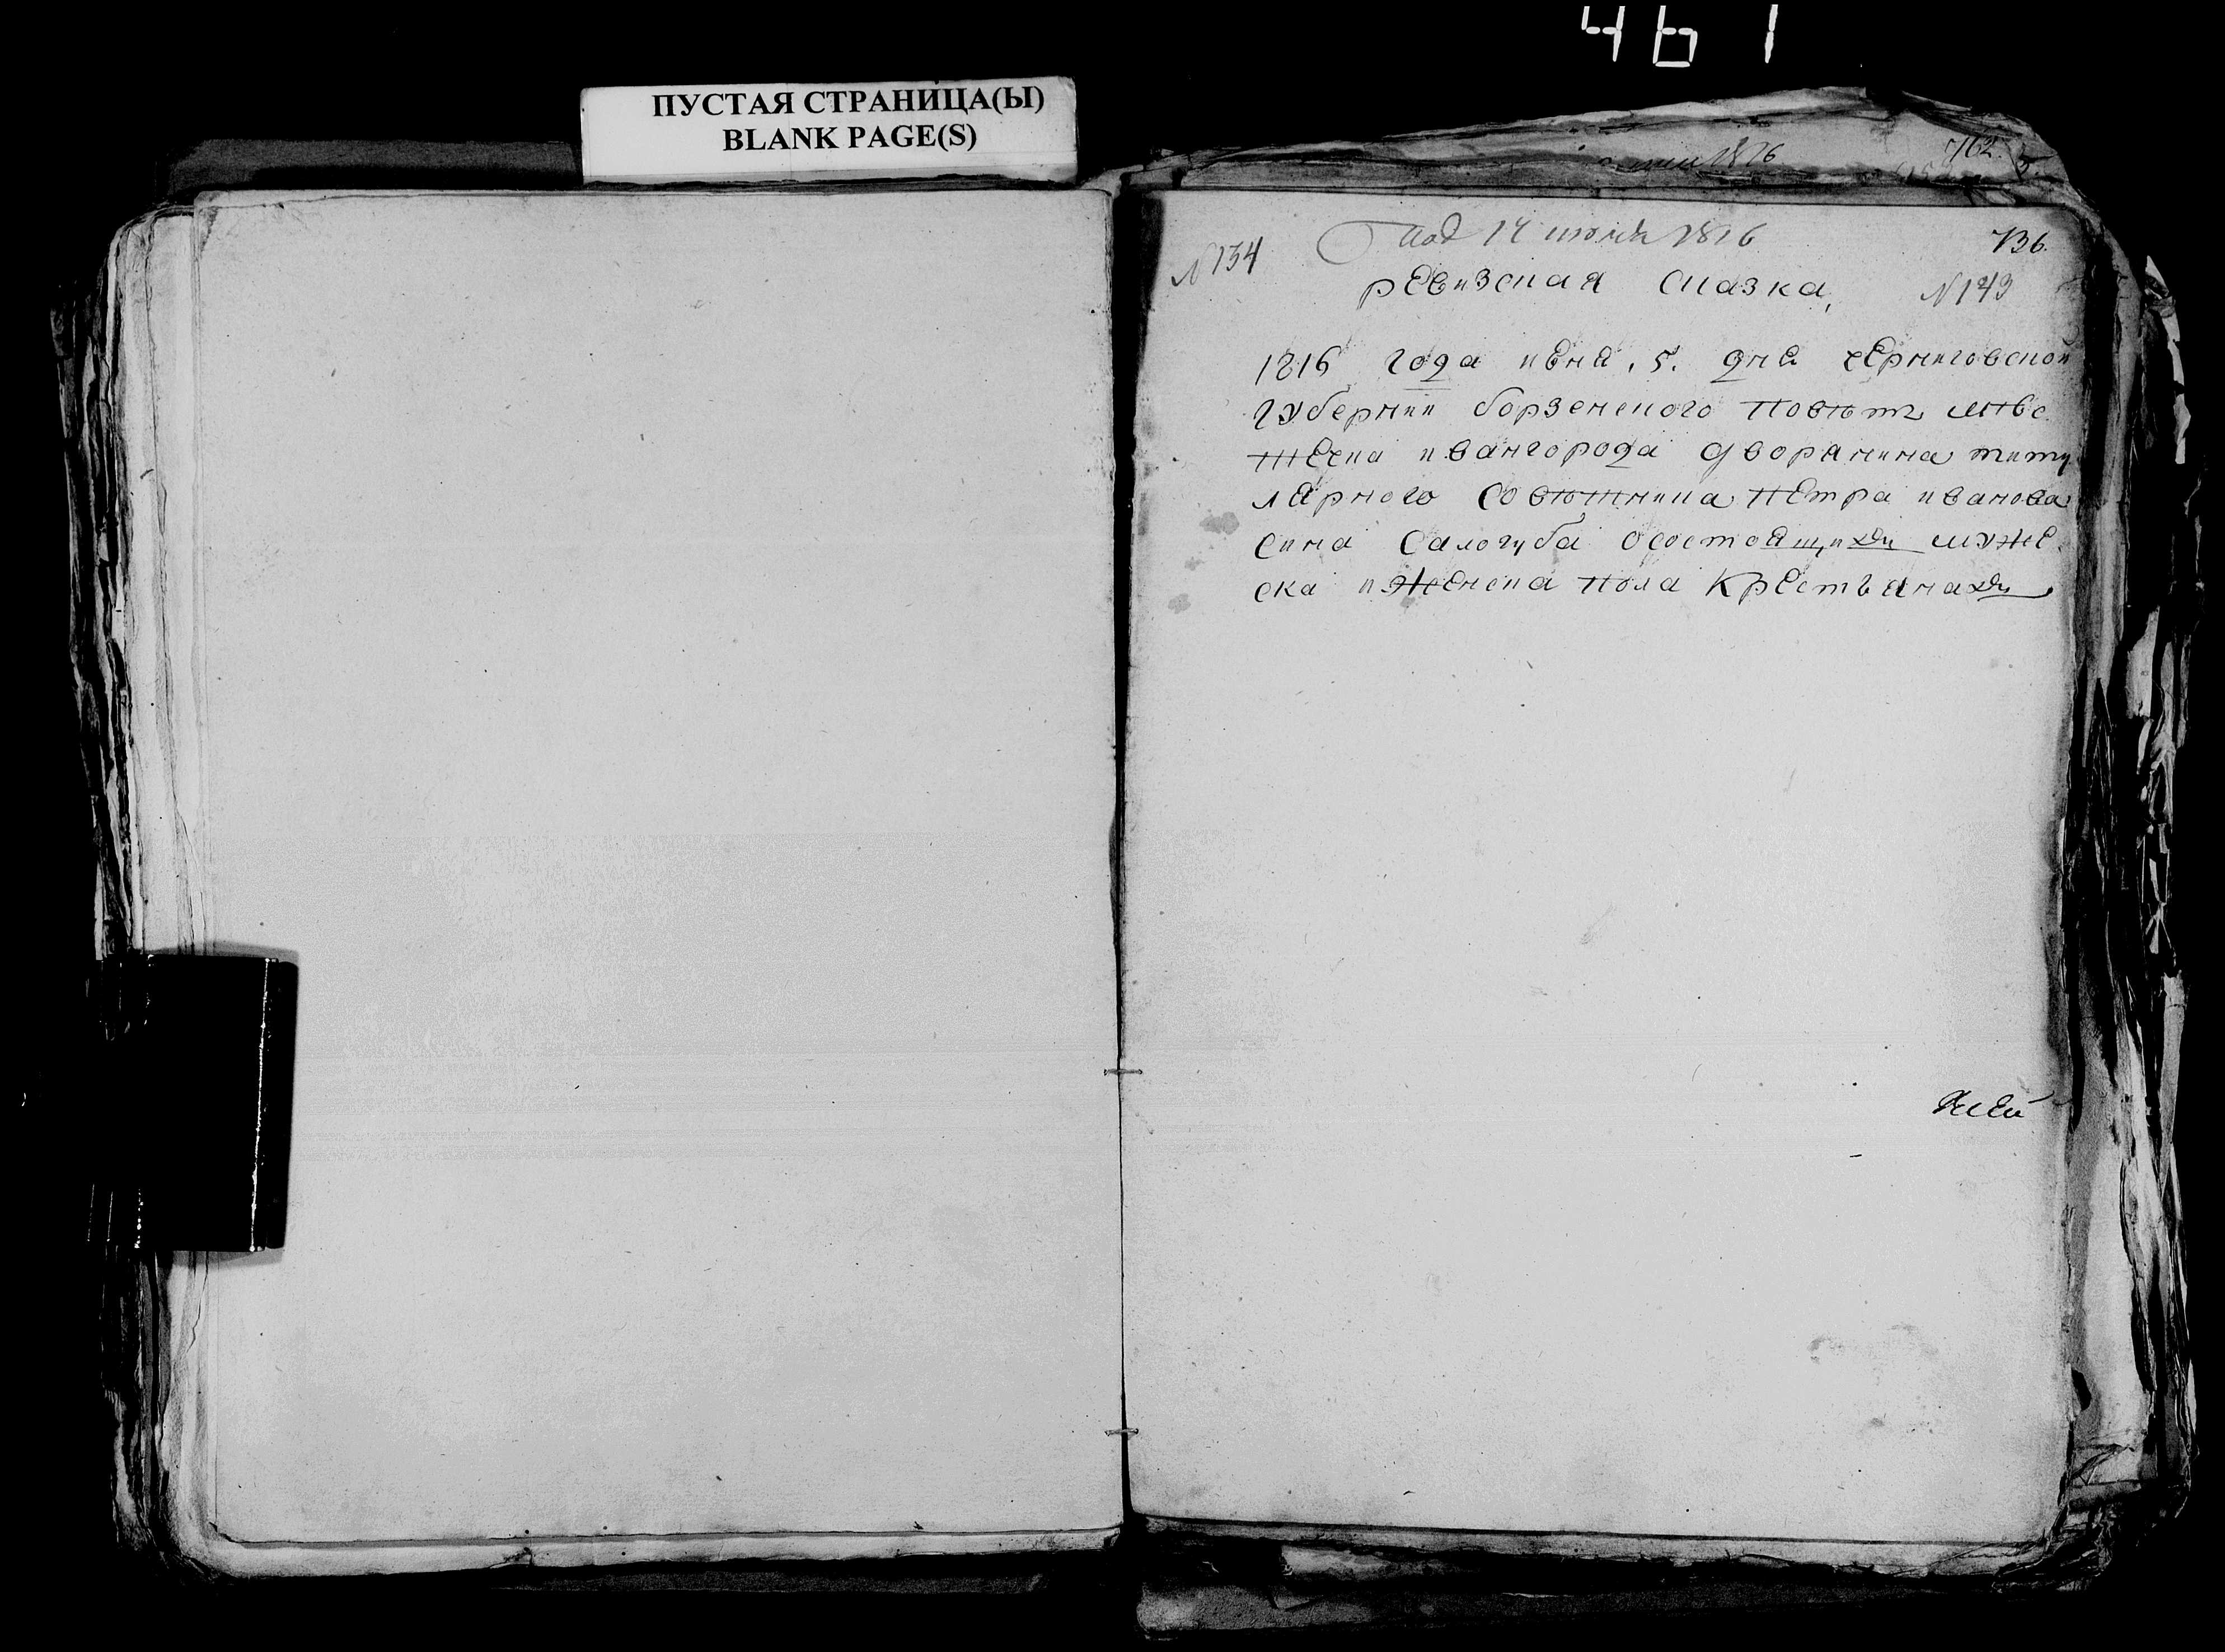 461
ПУСТАЯ СТРАНИЦА(Ы)
BLANK PAGE(S)
1816
762.
№134
Под 14 июня 1816
736.
ревизская сказка,
№143
1816 года июня, 5. дня черниговской
губернии борзенского повѣтъ мѣс
течка ивангорода дворянина титу
лярного совѣтника петра иванова
сина салогуба осостоящихъ муже
ска иженска пола крестьянахъ